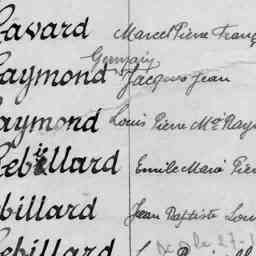 Lavard Marcel Pierre Franç
Germain
Raymond Jacques Jean
Raymond Louis Pierre Mie Ray
Lebillard Emile Marie Pier
Lebillard Jean Baptiste Lou
Lebillard